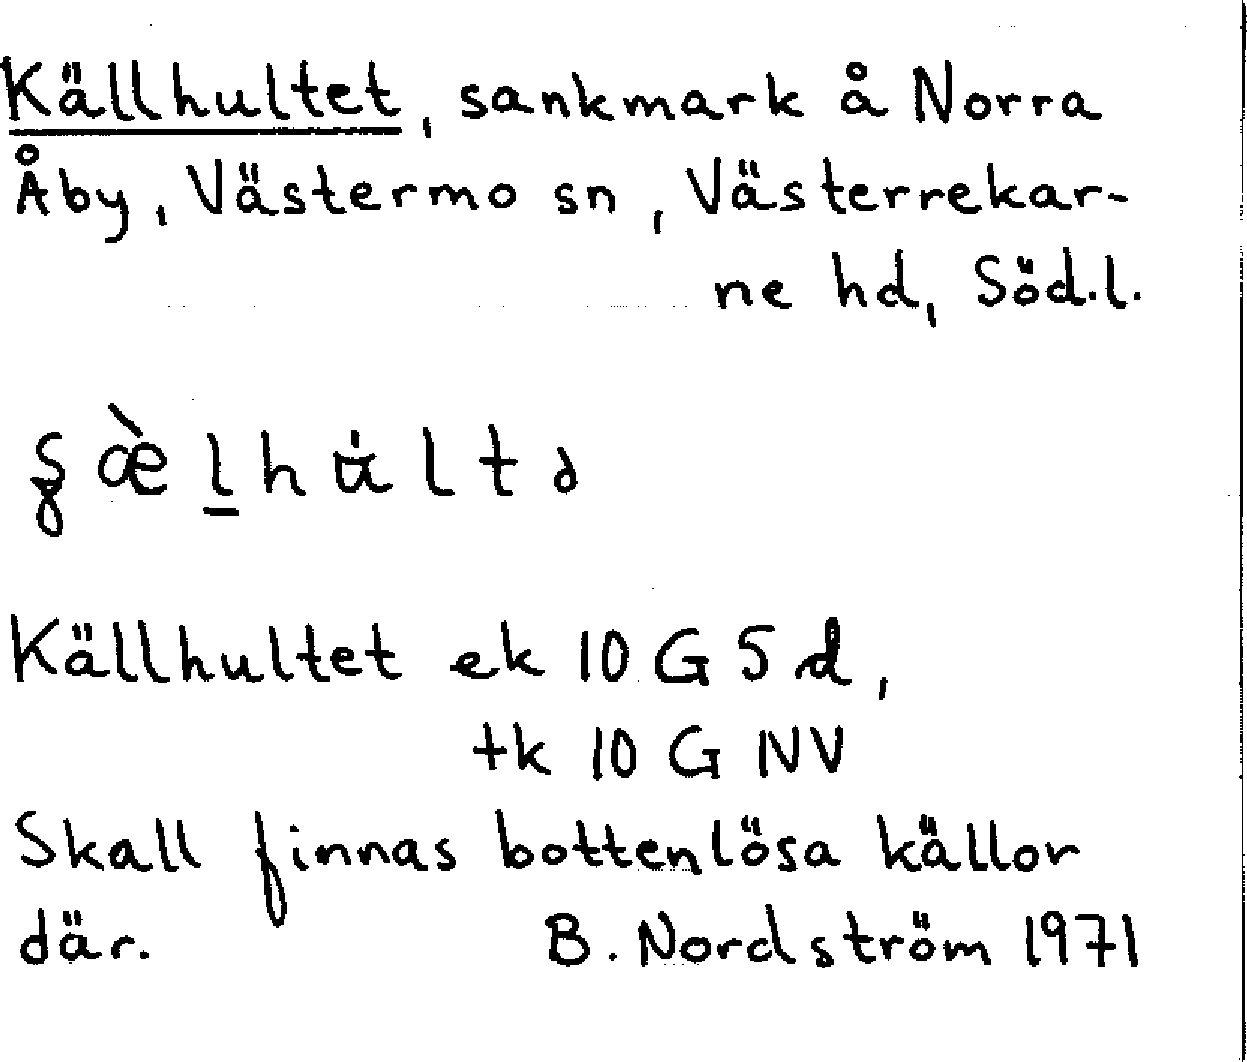 Källhultet, sankmark å Norra
Åby, Västermo sn, Västerrekar-
ne hd, Söd.l.
Källhultet ek 10 G 5 d,
tk 10 G NV
Skall finnas bottenlösa källor
där. B. Nordström 1971